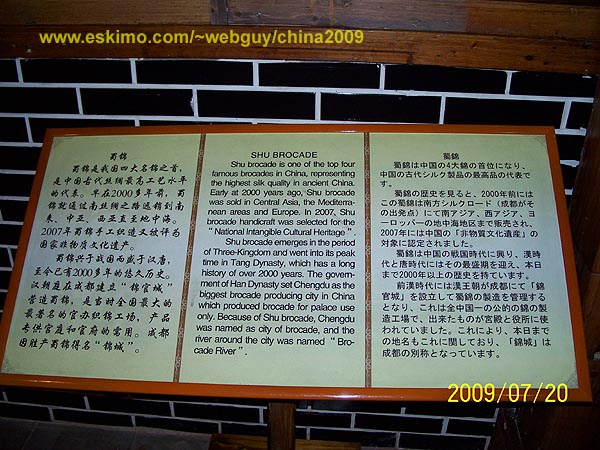 www.eskimo.com/~webguy/china2009
蜀锦
蜀锦是我国四大名锦之首，
是中国古代丝绸最高工艺水平
的代表。早在2000多年前，蜀
锦就通过南丝绸之路远销到南
亚、中亚、西亚直至地中海。
2007年蜀锦手工织造又被评为
国家非物质文化遗产。
蜀锦兴于我国西盛于汉唐，
至今已有2000多年的悠久历史。
汉朝廷在成都建立“锦官城”
营造蜀锦，是当时全国最大的
最著名的官办织锦工场，产品
专供宫庭和官府的需用。成都
因胜产蜀锦得名“锦城”。
SHU BROCADE
Shu brocade is one of the top four
famous brocades in China, representing
the highest silk quality in ancient China.
Early at 2000 years ago, Shu brocade
was sold in Central Asia, the Mediterra-
nean areas and Europe. In 2007, Shu
brocade handicraft was selected for the
“National Intangible Cultural Heritage”.
Shu brocade emerges in the period
of Three-Kingdom and went into its peak
time in Tang Dynasty, which has a long
history of over 2000 years. The govern-
ment of Han Dynasty set Chengdu as the
biggest brocade producing city in China
which produced brocade for palace use
only. Because of Shu brocade, Chengdu
was named as city of brocade, and the
river around the city was named “Bro-
cade River”.
蜀錦
蜀錦は中国の4大錦の首位になり、
中国の古代シルク製品の最高品の代表で
す。
蜀錦の歴史を見ると、2000年前には
この蜀錦は南方シルクロード（成都がそ
の出発点）にて南アジア、西アジア、ヨ
ーロッパーの地中海地区まで販売され、
2007年には中国の「非物質文化遺産」の
対象に認定されました。
蜀錦は中国の戦国時代に興り、漢時
代と唐時代にはその最盛期を迎え、本日
まで2000年以上の歴史を持ています。
前漢時代には漢王朝が成都にて「錦
官城」を設立して蜀錦の製造を管理する
となり、これは全中国一の公的の錦の製
造工場で、出来たものが宮殿と役所に使
われていました。これにより、本日まで
の地名もこれに関しており、「錦城」は
成都の別称となっています。
2009/07/20